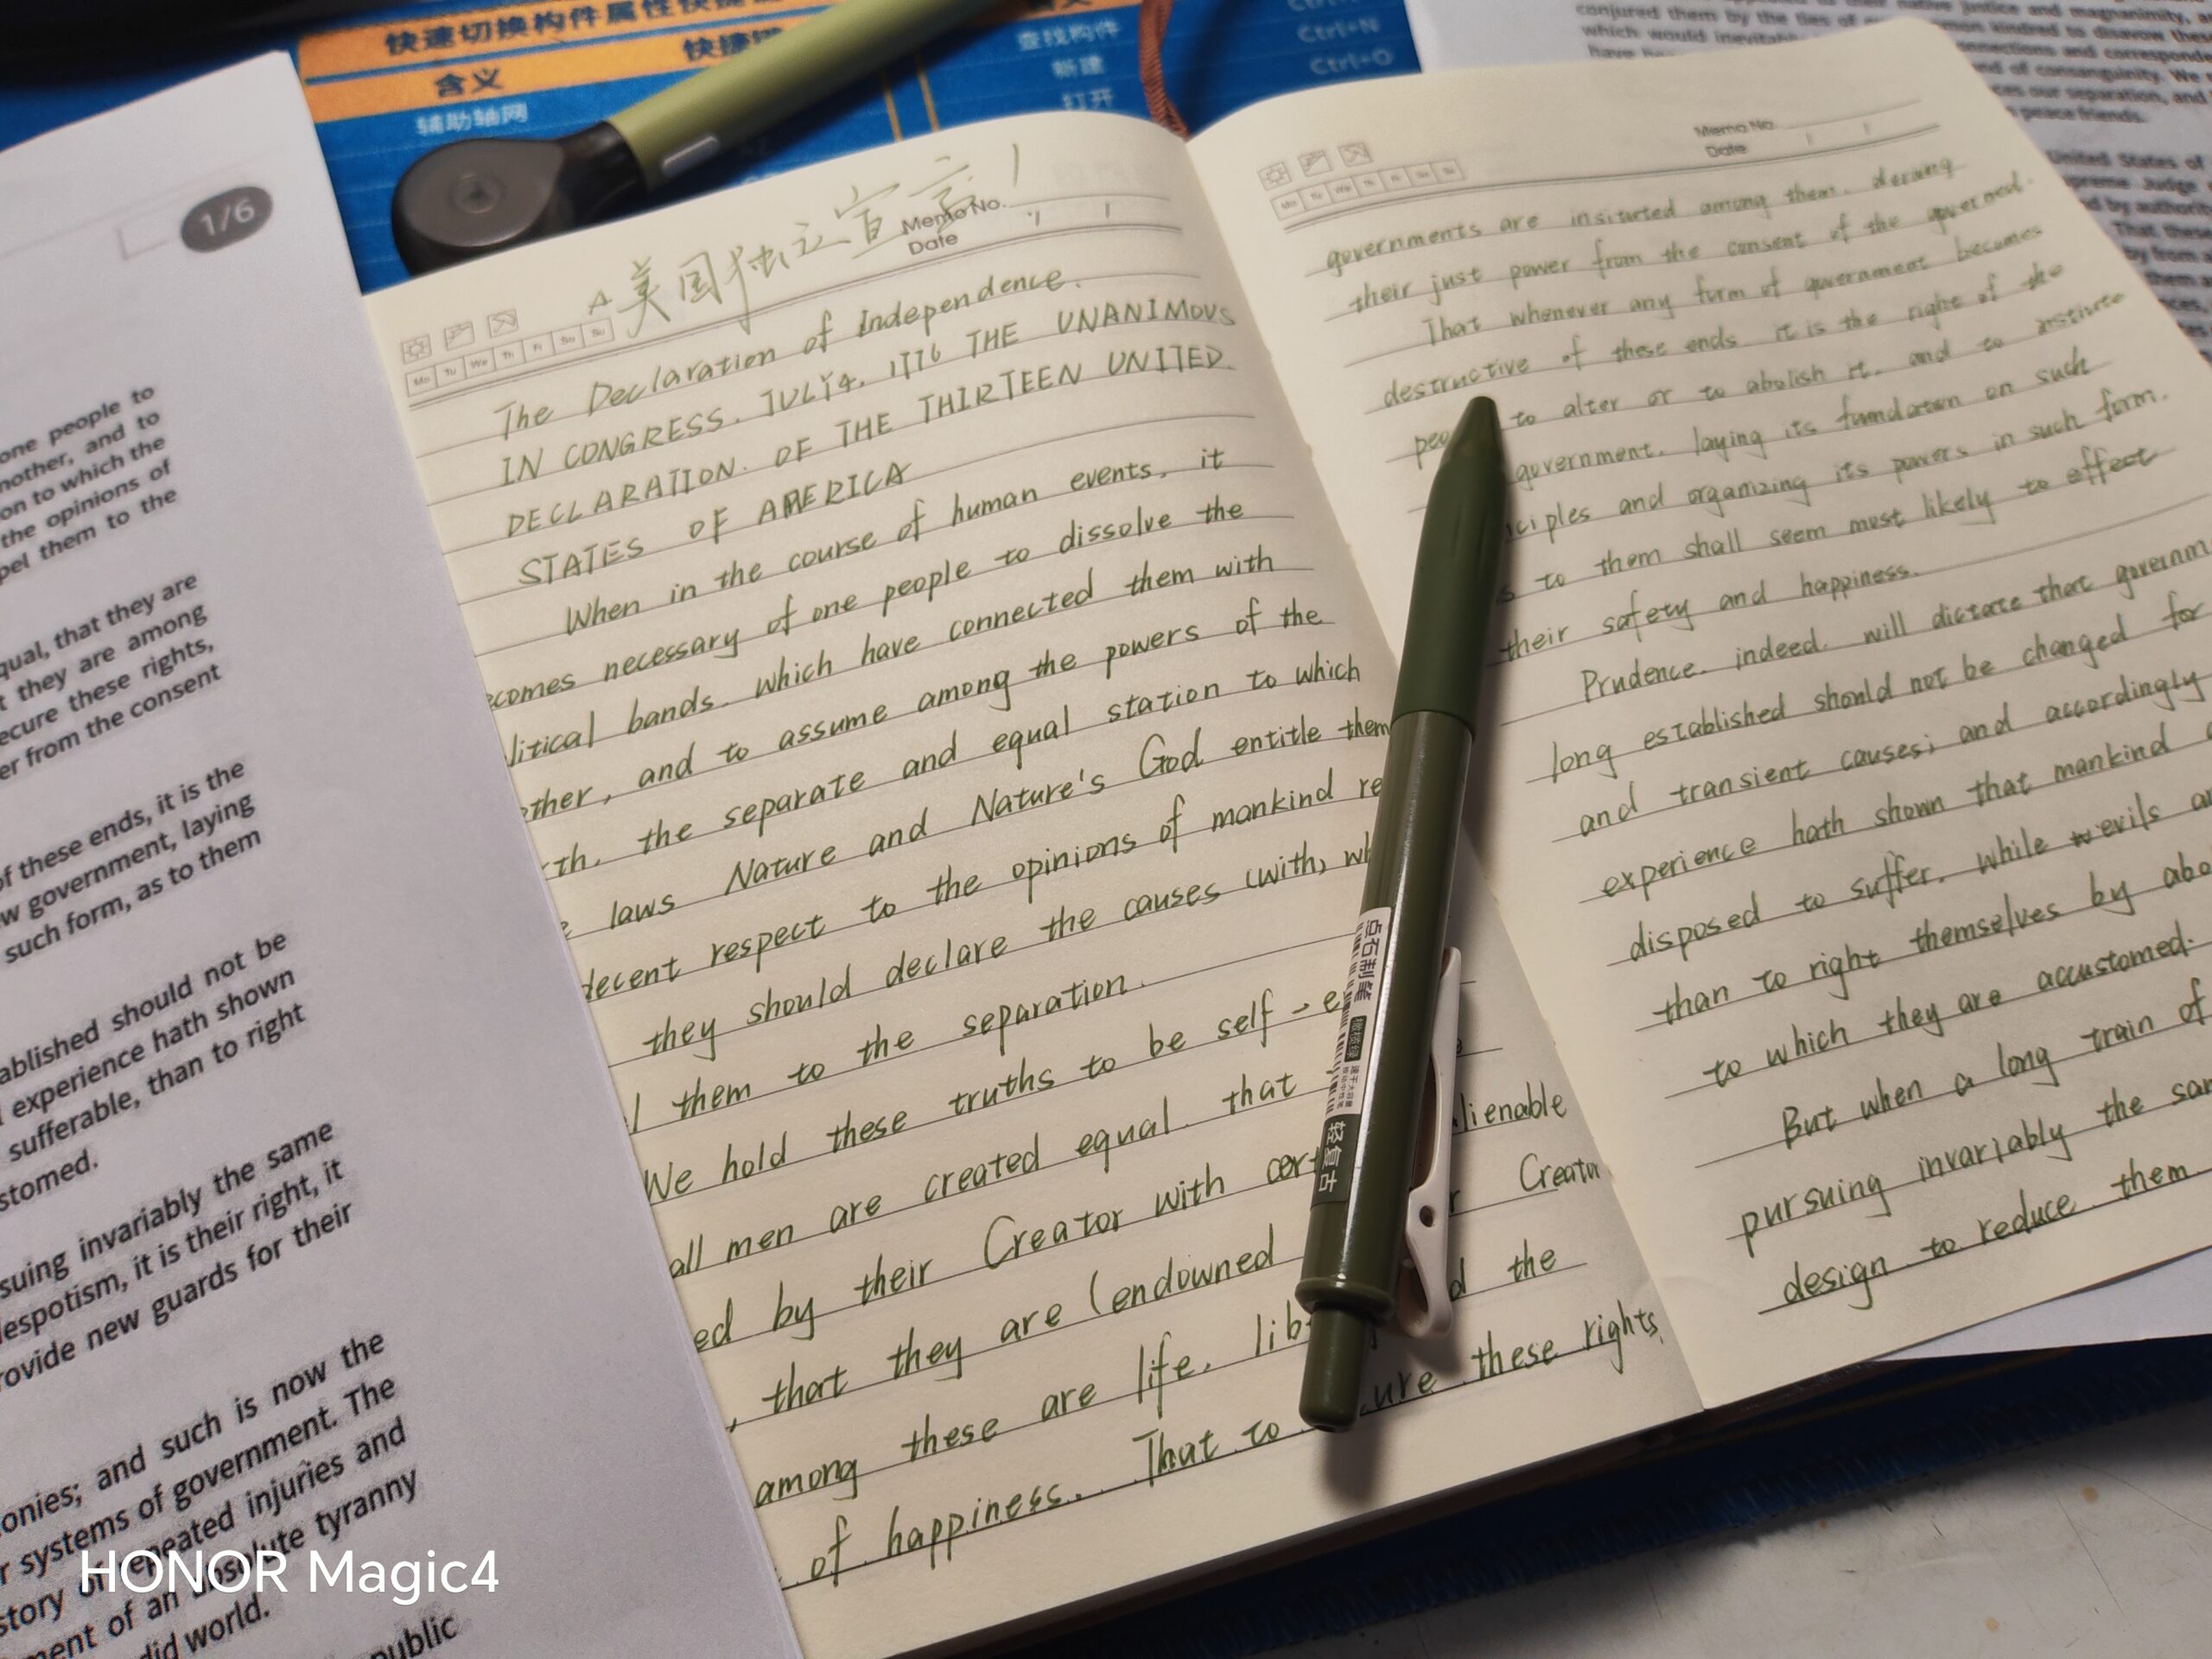 快速切换构件属性快捷
含义
快捷键
辅助轴网
查找构件
新建
打开
Ctrl+N
Ctrl+O
1/6
one people to
nother, and to
on to which the
the opinions of
pel them to the
qual, that they are
t they are among
ecure these rights,
er from the consent
of these ends, it is the
w government, laying
such form, as to them
ablished should not be
experience hath shown
sufferable, than to right
stomed.
suing invariably the same
espotism, it is their right, it
rovide new guards for their
onies; and such is now the
r systems of government. The
story of repeated injuries and
ment of an absolute tyranny
did world.
public
美国独立宣言!
Memo No.
Date
Mo Tu We Th Fr Sa Su
The Declaration of Independence.
IN CONGRESS. JULY4. 1776 THE UNANIMOUS
DECLARATION. OF THE THIRTEEN UNITED.
STATES OF AMERICA
When in the course of human events, it
ecomes necessary of one people to dissolve the
litical bands. which have connected them with
other, and to assume among the powers of the
rth. the separate and equal station to which
e laws Nature and Nature's God entitle them
decent respect to the opinions of mankind re
they should declare the causes (with, wh
l them to the separation.
We hold these truths to be self-e
all men are created equal. that
ed by their Creator with cer lienable
, that they are (endowed r Creator
among these are life. lib d the
of happiness. That to ure these rights,
Memo No.
Date
Mo Tu We Th Fr Sa Su
governments are insituted among them. deriving
their just power from the consent of the governed.
That whenever any form of government becomes
destructive of these ends it is the right of the
peo to alter or to abolish it. and to institute
government. laying its fundaton on such
ciples and organizing its powers in such form.
s to them shall seem most likely to effect
their safety and happiness.
Prudence. indeed. will dictate that governm
long established should not be changed for
and transient causes; and accordingly
experience hath shown that mankind a
disposed to suffer. while evils ar
than to right themselves by abo
to which they are accustomed.
But when a long train of
pursuing invariably the sam
design to reduce them
点石制笔
轻复古
conjured them by the ties of
which would inevitab
have
native justice and magnanimity,
kindred to disavow these
connections and correspond
of consanguinity. We
ces our separation, and
peace friends.
United States of
preme Judge
by authori
That these
HONOR Magic4